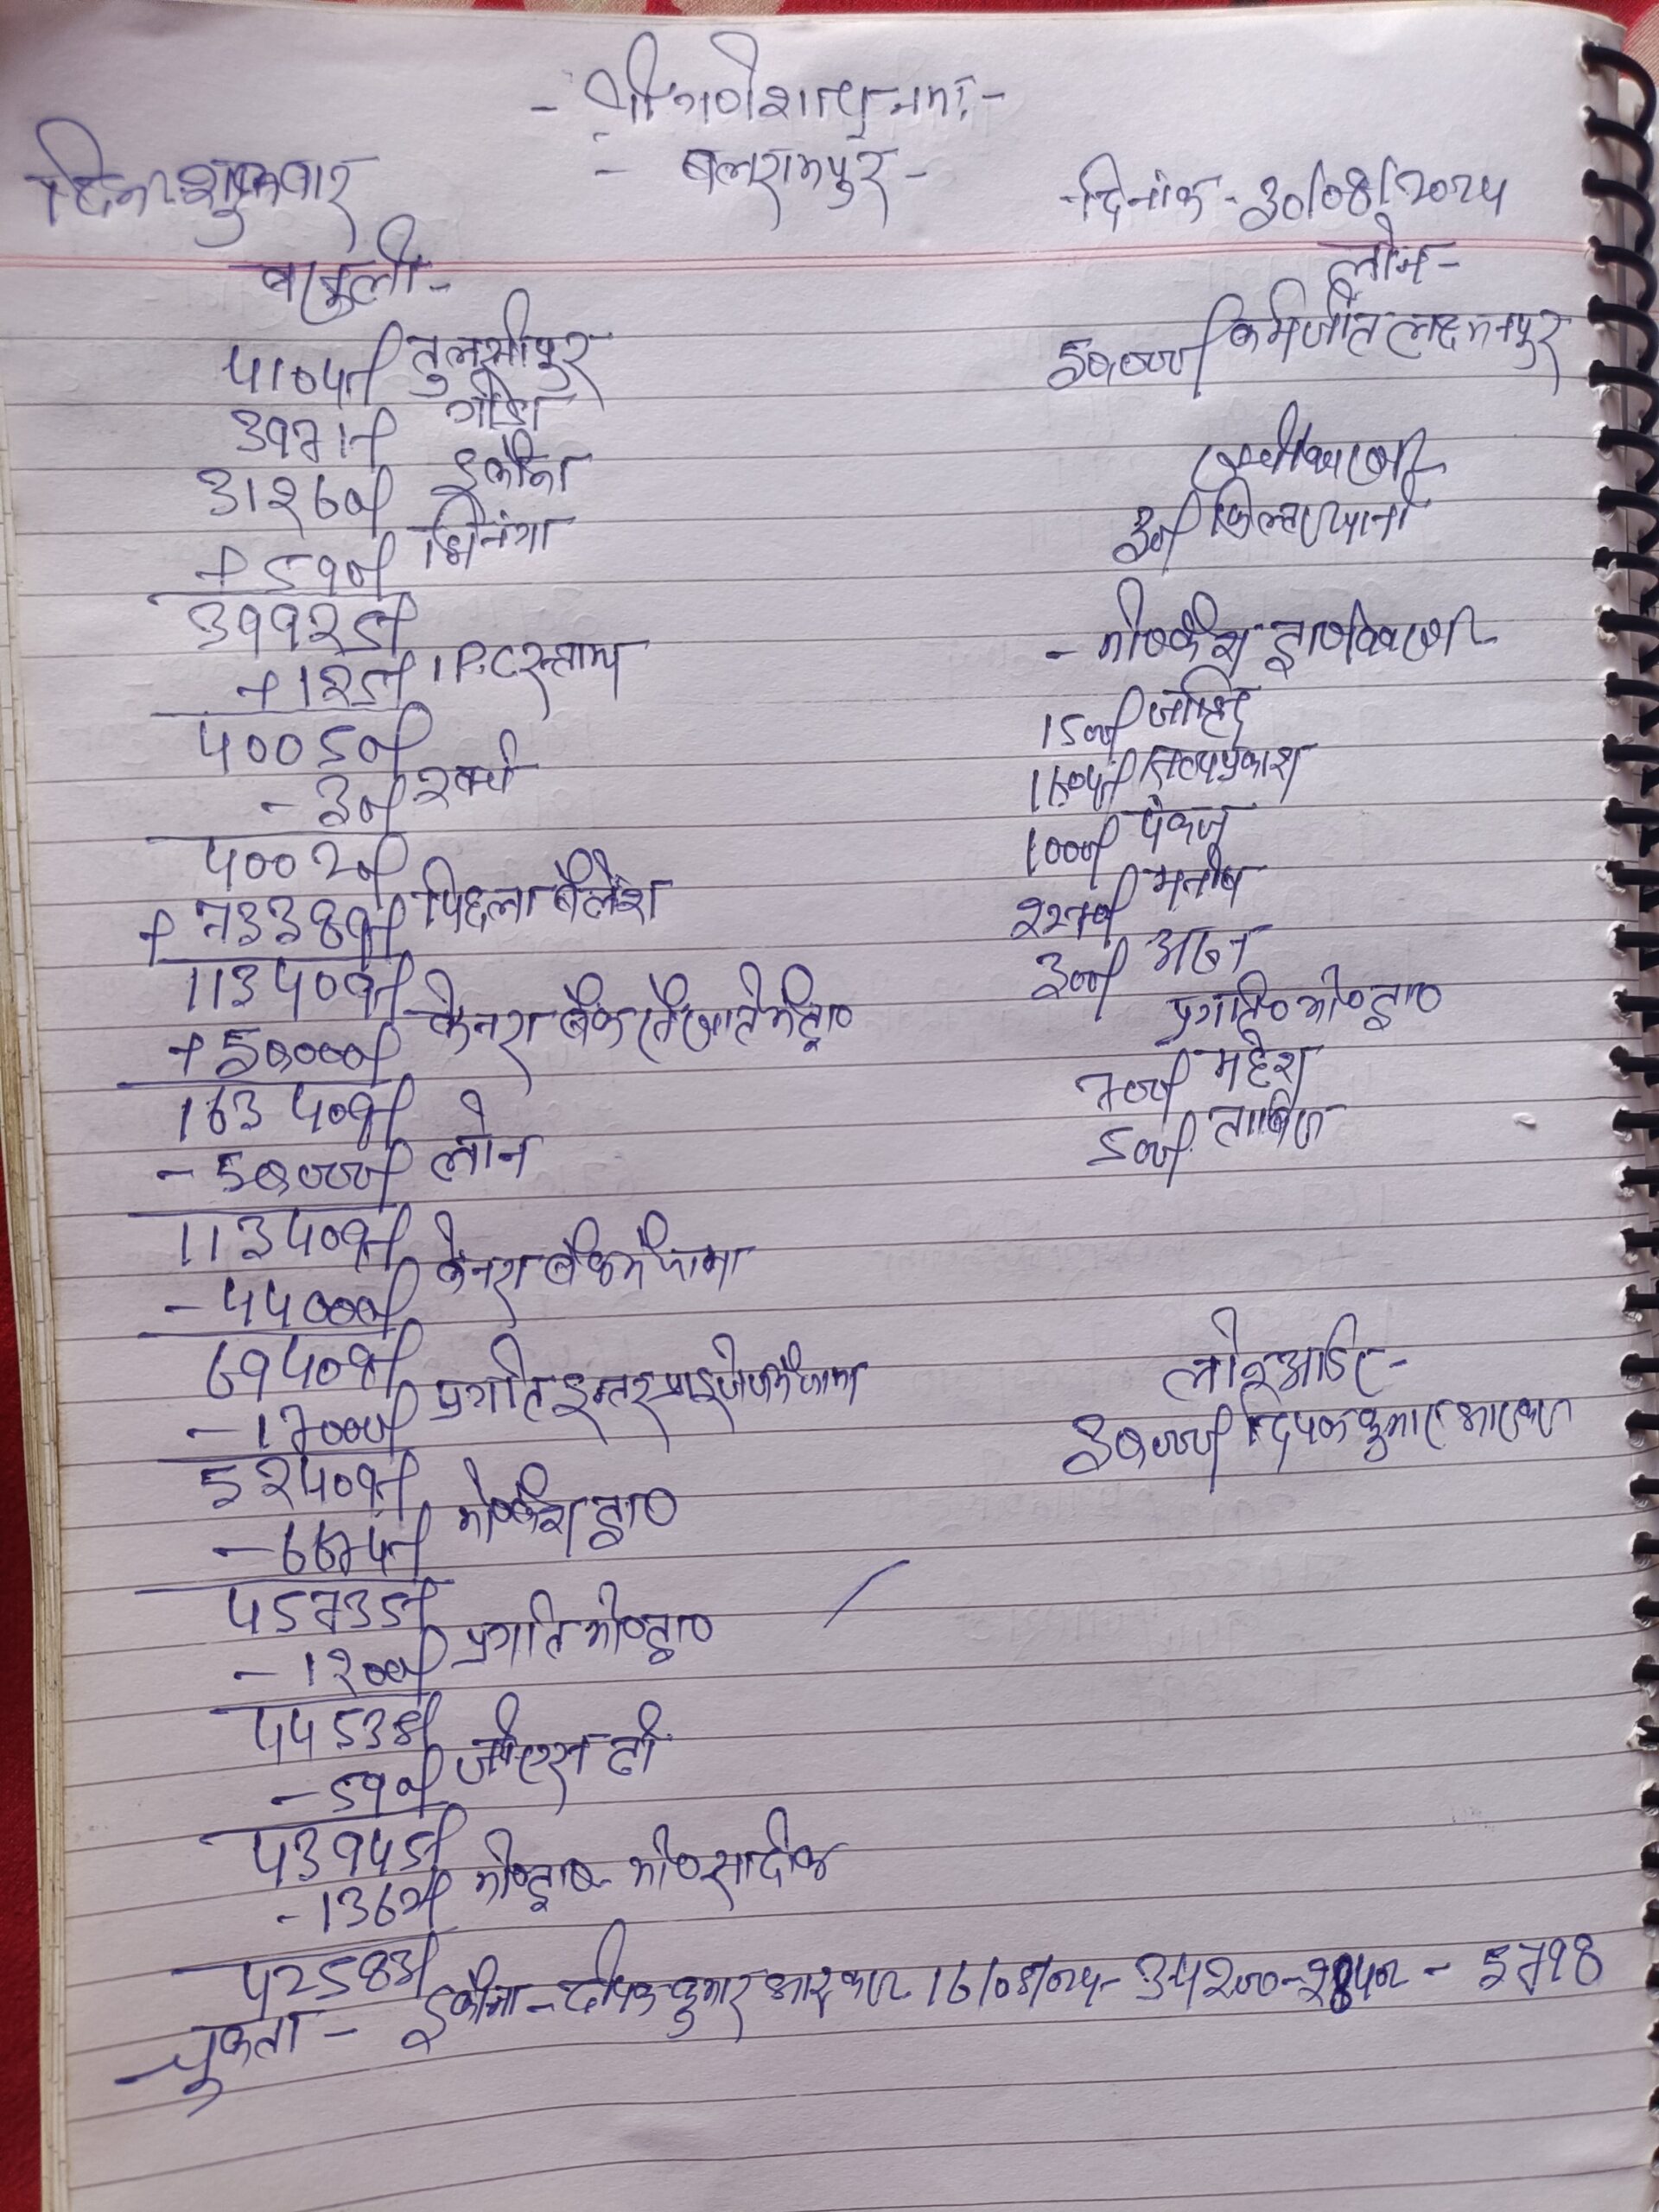 - श्री गणेशाय नमः -
- बलरामपुर -
दिन शुक्रवार
दिनांक - 30/08/2024
वसूली -
4104/- तुलसीपुर
3971/- गोंडा
31260/- इकौना
+ 590/- भिनगा
39925/-
+ 125/-
40050/-
- 30/- खर्च
40020/-
+ 73389/- पिछला बैलेंश
113409/-
+ 50000/- केनरा बैंक
163409/-
- 50000/- लोन
113409/-
- 44000/- केनरा बैंक में जमा
69409/-
- 17000/- प्रगति इन्टरप्राइजेज में जमा
52409/-
- 6674/- मो० कैश द्वा०
45735/-
- 1200/- प्रगति मो० द्वा०
44535/-
- 590/- जी एस टी
43945/-
- 1362/- मो० द्वा० मो० सादीक
42583/-
लोन -
50000/- कर्मजीत लक्ष्मनपुर
30/- पानी
- मो० कैश द्वा०
1500/- जाहिद
1604/- सत्यप्रकाश
1000/- पंकज
2270/- मनोज
300/-
प्रगति० मो० द्वा०
700/- महेश
500/-
30000/- दिपक कुमार
चुकता - इकौना - दीपक कुमार 16/08/024 - 34200 - 28402 - 5798